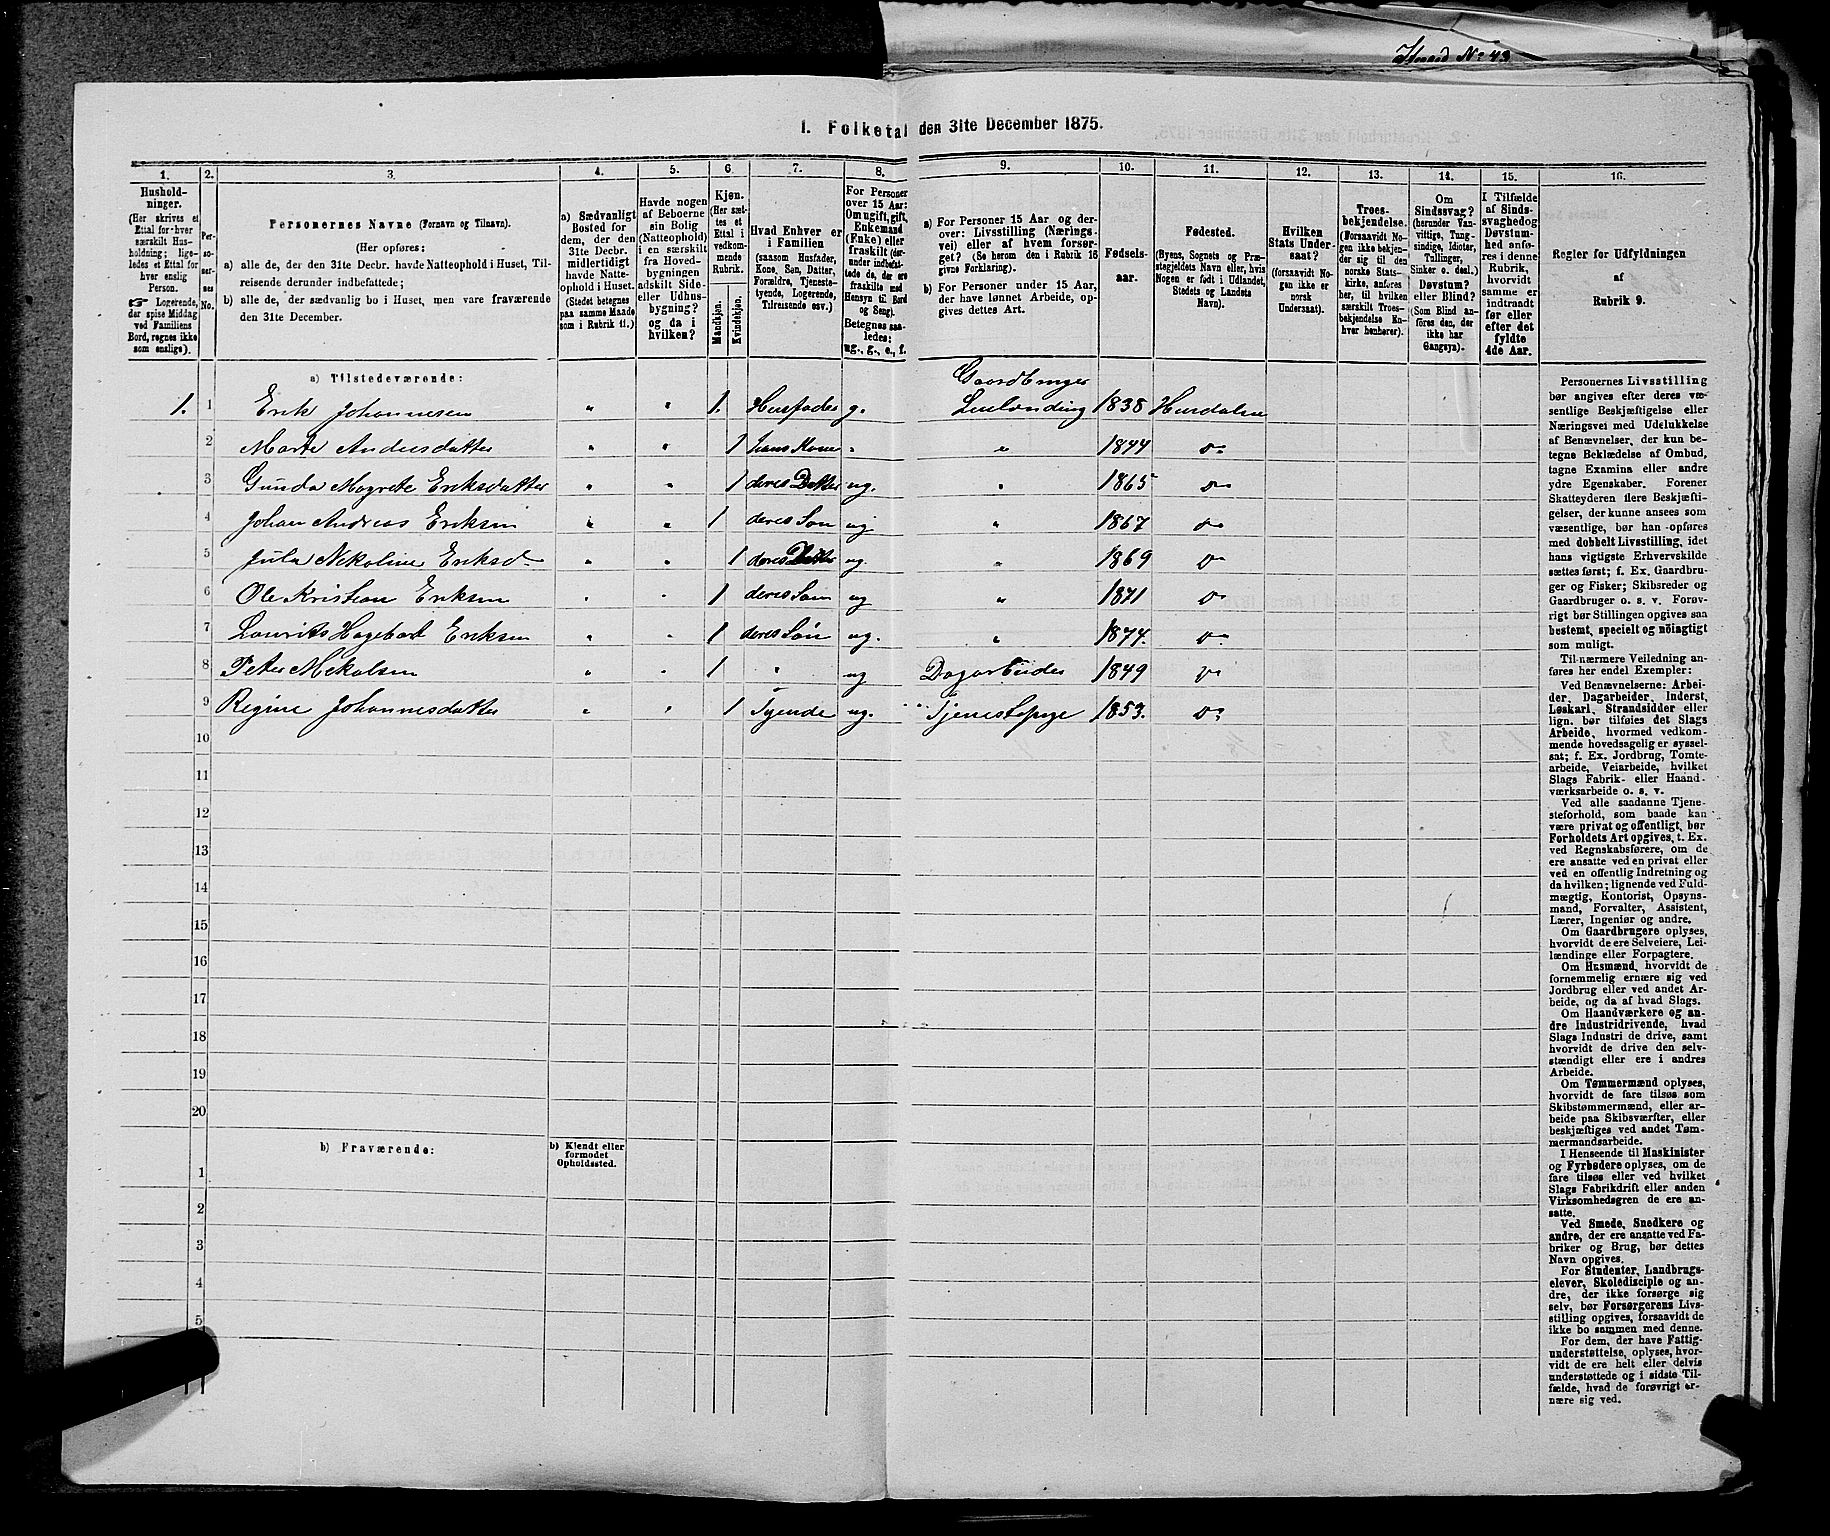 No 43
1. Folketal den 31te December 1875.
1. 2. 3. 4. 5. 6. 7. 8. 9. 10. 11. 12. 13. 14. 15. 16.
Hushold-
ninger.
(Her skrives et
Ettal for hver
særskilt Hus-
holdning; lige-
ledes et Ettal for
hver enslig
Person.
☞ Logerende,
der spise Middag
ved Familiens
Bord, regnes ikke
som enslige).
Per-
so-
ner-
nes
No.
Personernes Navne (Fornavn og Tilnavn).
(Her opføres:
a) alle de, der den 31te Decbr. havde Natteophold i Huset, Til-
reisende derunder indbefattede;
b) alle de, der sædvanlig bo i Huset, men vare fraværende
den 31te December.
a) Sædvanligt
Bosted for
dem, der den
31te Decbr.
midlertidigt
havde Natte-
ophold i Huset.
(Stedet betegnes
paa samme Maade
som i Rubrik 11.)
Havde nogen
af Beboerne
sin Bolig
(Natteophold)
i en særskilt
fra Hoved-
bygningen
adskilt Side-
eller Udhus-
bygning?
og da i
hvilken?
Kjøn.
(Her sæt-
tes et
Ettal i
vedkom-
mende
Rubrik.
Mandkjøn.
Kvindekjøn.
Hvad Enhver er
i Familien
(saasom Husfader,
Kone, Søn, Datter,
Forældre, Tjeneste-
tyende, Logerende,
Tilreisende osv.)
For Personer
over 15 Aar:
Om ugift, gift,
Enkemand
(Enke) eller
fraskilt (der-
under indbefat-
tede de, der ere
fraskilte med
Hensyn til Bord
og Seng).
Betegnes saa-
ledes:
ug., g., e., f.
a) For Personer 15 Aar og der-
over: Livsstilling (Nærings-
vei) eller af hvem forsør-
get? (Se herom den i Rubrik 16
givne Forklaring).
b) For Personer under 15 Aar,
der have lønnet Arbeide, op-
gives dettes Art.
Fødsels-
aar.
Fødested.
(Byens, Sognets og Præ-
stegjeldets Navn eller, hvis
Nogen er født i Udlandet,
Stedets og Landets
Navn).
Hvilken
Stats Under-
saat?
(forsaavidt No-
gen ikke er
norsk
Undersaat).
Troes-
bekjendelse.
(Forsaavidt No-
gen ikke bekjen-
der sig til den
norske Stats-
kirke, anføres
her, til hvilken
særskilt Troes-
bekjendelse En-
hver henhører).
Om
Sindssvag?
(herunder Van-
vittige, Tung-
sindige, Idioter,
Tullinger,
Sinker o. desl.)
Døvstum?
eller Blind?
(Som Blind an-
føres den, der
ikke har
Gangsyn).
I Tilfælde
af Sinds-
svaghed og
Døvstum-
hed anfø-
res i denne
Rubrik,
hvorvidt
samme er
indtraadt
før eller
efter det
fyldte
4de Aar.
Regler for Udfyldningen
af
Rubrik 9.
a) Tilstedeværende:
Gaardbruger
1. 1 Erik Johannesen " " 1. Husfader g. Leilænding 1838 Hurdalen
2 Marte Andersdatter " " 1 hans Kone " " 1844 do
3 Gunda Magrete Eriksdatter " " 1 deres Datter ug. " 1865 do
4 Johan Andreas Eriksen " " 1 deres Søn ug " 1867 do
5 Jula Nekoline Eriksd " " 1 deres Datter ug. " 1869 do
6 Ole Kristian Eriksen " " 1 deres Søn ug " 1871 do
7 Laurits Hagebart Eriksen " " 1 deres Søn ug. " 1874. do
8 Peter Mekalsen " " 1 " ug Dagarbeider 1849 do
9 Regine Johannesdatter " " 1 Tyende ug. Tjenestepige 1853. do
10
11
12
13
14
15
16
17
18
19
20
b) Fraværende:
b) Kjendt eller
formodet
Opholdssted.
1
2
3
4
5
Personernes Livsstilling
bør angives efter deres væ-
sentlige Beskjæftigelse eller
Næringsvei med Udelukkelse
af Benævnelser, der kun be-
tegne Beklædelse af Ombud,
tagne Examina eller andre
ydre Egenskaber. Forener
Skatteyderen flere Beskjæfti-
gelser, der kunne ansees som
væsentlige, bør han opføres
med dobbelt Livsstilling, idet
hans vigtigste Erhvervskilde
sættes først; f. Ex. Gaardbru-
ger og Fisker; Skibsreder og
Gaardbruger o. s. v. Forøv-
rigt bør Stillingen opgives saa
bestemt, specielt og nøiagtigt
som muligt.
Til nærmere Veiledning an-
føres her endel Exempler:
Ved Benævnelserne: Arbei-
der, Dagarbeider, Inderst,
Løskarl, Strandsidder eller
lign. bør tilføies det Slags
Arbeide, hvormed vedkom-
mende hovedsagelig er syssel-
sat; f. Ex. Jordbrug, Tomte-
arbeide, Veiarbeide, hvilket
Slags Fabrik- eller Haand-
værksarbeide o. s. v.
Ved alle saadanne Tjene-
steforhold, som baade kan
være privat og offentligt, bør
Forholdets Art opgives, t. Ex.
ved Regnskabsførere, om de
ere ansatte ved en privat eller
ved en offentlig Indretning og
da hvilken; lignende ved Fuld-
mægtig, Kontorist, Opsyns-
mand, Forvalter, Assistent,
Lærer, Ingeniør og andre.
Om Gaardbrugere oplyses,
hvorvidt de ere Selveiere, Lei-
lændinge eller Forpagtere.
Om Husmænd, hvorvidt de
fornemmelig ernære sig ved
Jordbrug eller ved andet Ar-
beide, og da af hvad Slags.
Om Haandværkere og an-
dre Industridrivende, hvad
Slags Industri de drive, samt
hvorvidt de drive den selv-
stændigt eller ere i andres
Arbeide.
Om Tømmermænd oplyses,
hvorvidt de fare tilsøs som
Skibstømmermænd, eller ar-
beide paa Skibsværfter, eller
beskjæftiges ved andet Tøm-
mermandsarbeide.
I Henseende til Maskinister
og Fyrbødere oplyses, om de
fare tilsøs eller ved hvilket
Slags Fabrikdrift eller anden
Virksomhedsgren de ere an-
satte.
Ved Smede, Snedkere og
andre, der ere ansatte ved Fa-
briker og Brug, bør dettes
Navn opgives.
For Studenter, Landbrugs-
elever, Skoledisciple og an-
dre, der ikke forsørge sig
selv, bør Forsørgerens Livs-
stilling opgives, forsaavidt de
ikke bo sammen med denne.
For dem, der have Fattig-
understøttelse, oplyses, hvor-
vidt de ere helt eller delvis
understøttede og i sidste Til-
fælde, hvad de forøvrigt er-
nære sig ved.